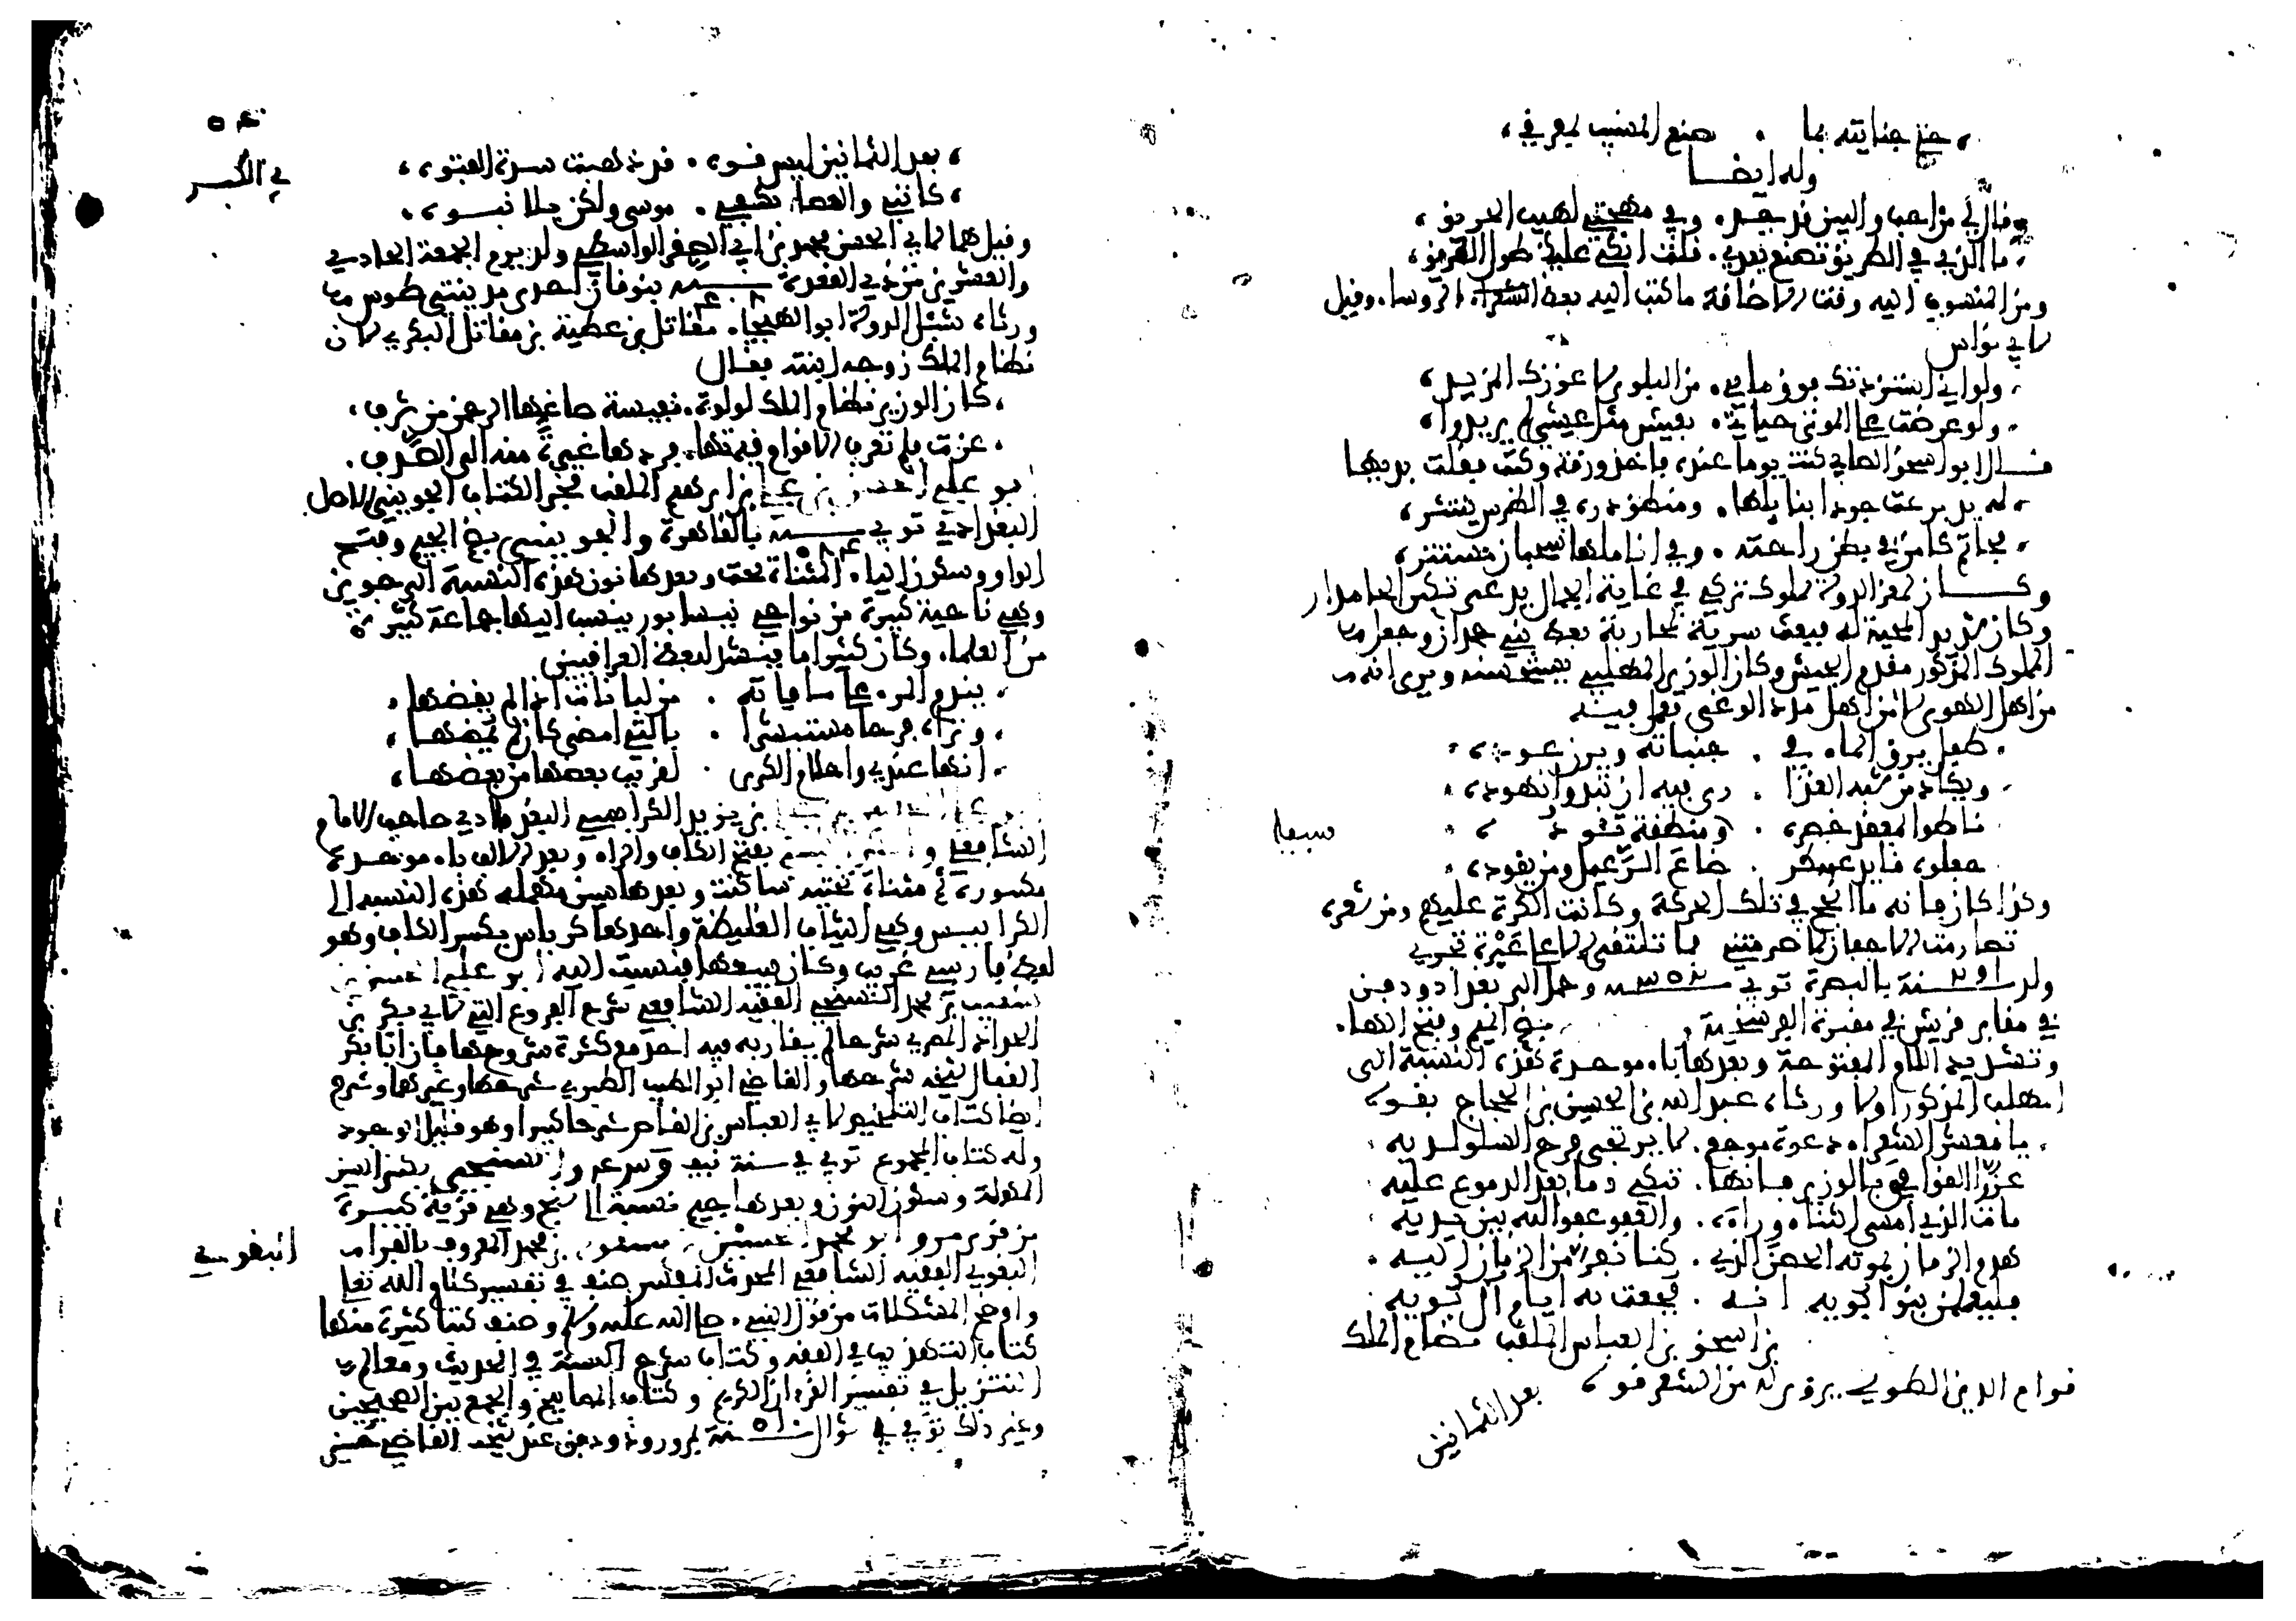 حتى جنايته بما . صنع المشيب بمعرفي
وله ايضا
قال لي من احب والبين قد جد . وفي مهجتي لهيب الحريق
ما الذي في الطريق تصنع بعدي . قلت ابكي عليك طول الطريق
ومن المنسوب اليه وقت الاضافة ما كتب اليه بعض الروسا وقيل
لابي نواس
ولو اني استزدتك فوق ما بي . من البلوى لاعوزك المزيد
ولو عرضت على الموتى حياتي . بعيش مثل عيشي لم يريدوا
قال ابو اسحق الصابي كنت يوما عنده فاخذ ورقة وكتب فقلت بديها
له يد برعت جودا بنايلها . ومنطق دره في الطرس ينتثر
فحاتم كامن في بطن راحته . وفي اناملها سحبان مستتر
وكان لمعز الدولة مملوك تركي في غاية الجمال يدعى تكين الجامدار
وكان شديد المحبة له فبعث سرية لمحاربة بعض بني حمدان وجعل
المملوك المذكور مقدم الجيش وكان الوزير المهلبي يستحسنه ويرى انه
من اهل الهوى لا من اهل مدد الوغى فعمل فيه
طفل يرق الماء في . جنباته ويرق عوده
ويكاد من شبه العذارا . رى فيه ان تبدو نهوده
ناطوا لمعقد خصره . ومنطقة تؤوده
سيفا
جعلوه قايد عسكر . ضاع الرعيل ومن يقوده
وكذا كان فانه ما انجح في تلك الحركة وكانت الكرة عليهم ومن شعره
تصارمت الاجفان لما صرمتني فما تلتقي الا على عبرة تجري
ولد سنة ٢٩١ بالبصرة توفي سنة ٣٥٢ وحمل الى بغداد ودفن
في مقابر قريش في مقبرة النوبختية بضم الميم وفتح الهاء
وتشديد اللام المفتوحة وبعدها باء موحدة هذه النسبة الى
المهلب المذكور اولا ورثاه عبد الله بن الحسين بن الحجاج بقوله
يا معشر الشعراء دعوة موجع . لا يرتجى فرح السلو لديه
عزوا القوافي بالوزير فانها . تبكي دما بعد الدموع عليه
مات الذي امسى الثناء وراءه . والعفو عفو الله بين يديه
هدم الزمان بموته الحصن الذي . كنا نفر من الزمان اليه
فليعلمن بنو بويه انه . فجعت به ايام آل بويه
بن اسحق بن العباس الملقب نظام الملك
قوام الدين الطوسي يروى له من الشعر قوله
بعد الثمانين
في الكبر
بعد الثمانين ليس قوه . قد ذهبت شرة الصبوه
كانني والعصا بكفي . موسى ولكن بلا نبوه
وقيل هما لابي الحسن محمد بن ابي الصقر الواسطي ولد يوم الجمعة الحادي
والعشرين من ذي القعدة سنة ٤٠٨ بنوقان احدى مدينتي طوس
ورثاه شبل الدولة ابو الهيجاء مقاتل بن عطية بن مقاتل البكري لان
نظام الملك زوجه ابنته فقال
كان الوزير نظام الملك لولوة . نفيسة صاغها الرحمن من شرف
عزت فلم تعرف الايام قيمتها . فردها غيرة منه الى الصدف
ابو علي الحسن بن علي بن ابرهيم الملقب فخر الكتاب الجويني الاصل
البغدادي توفي سنة ٥٨٤ بالقاهرة والجويني بضم الجيم وفتح
الواو وسكون الياء المثناة تحت وبعدها نون هذه النسبة الى جوين
وهي ناحية كبيرة من نواحي نيسابور ينسب اليها جماعة كثيرة
من العلماء وكان كثيرا ما ينشد لبعض العراقيين
يندم المرء على ما فاته . من لبانات اذا لم يقضها
وتراه فرحا مستبشرا . بالتي امضى كان لم يمضها
انها عندي واحلام الكرى . لقريب بعضها من بعضها
بن يزيد الكرابيسي البغدادي صاحب الامام
الشافعي بفتح الكاف والراء وبعد الالف باء موحدة
مكسورة ثم مثناة تحتية ساكنة وبعدها سين مهملة هذه النسبة الى
الكرابيس وهي الثياب الغليظة واحدها كرباس بكسر الكاف وهو
لفظ فارسي عرب وكان يبيعها فنسب اليه ابو علي الحسين بن
شعيب بن محمد السنجي الفقيه الشافعي شرح الفروع التي لابي بكر بن
الحداد المصري شرحا لم يقاربه فيه احد مع كثرة شروحها فان ابا بكر
القفال شيخه شرحها والقاضي ابو الطيب الطبري شرحها وغيرها وشرح
ايضا كتاب التلخيص لابي العباس بن القاص شرحا كبيرا وهو قليل الوجود
وله كتاب المجموع توفي في سنة نيف والسنجي بكسر السين
المهملة وسكون النون وبعدها جيم نسبة الى سنج وهي قرية كبيرة
من قرى مرو ابو محمد الحسين بن مسعود بن محمد المعروف بالفراء
البغوي
البغوي الفقيه الشافعي المحدث المفسر صنف في تفسير كلام الله تعالى
واوضح المشكلات من قول النبي صلى الله عليه وسلم وصنف كتبا كثيرة منها
كتاب التهذيب في الفقه وكتاب شرح السنة في الحديث ومعالم
التنزيل في تفسير القران الكريم وكتاب المصابيح والجمع بين الصحيحين
وغير ذلك توفي في شوال سنة ٥١٠ بمروروذ ودفن عند شيخه القاضي حسين